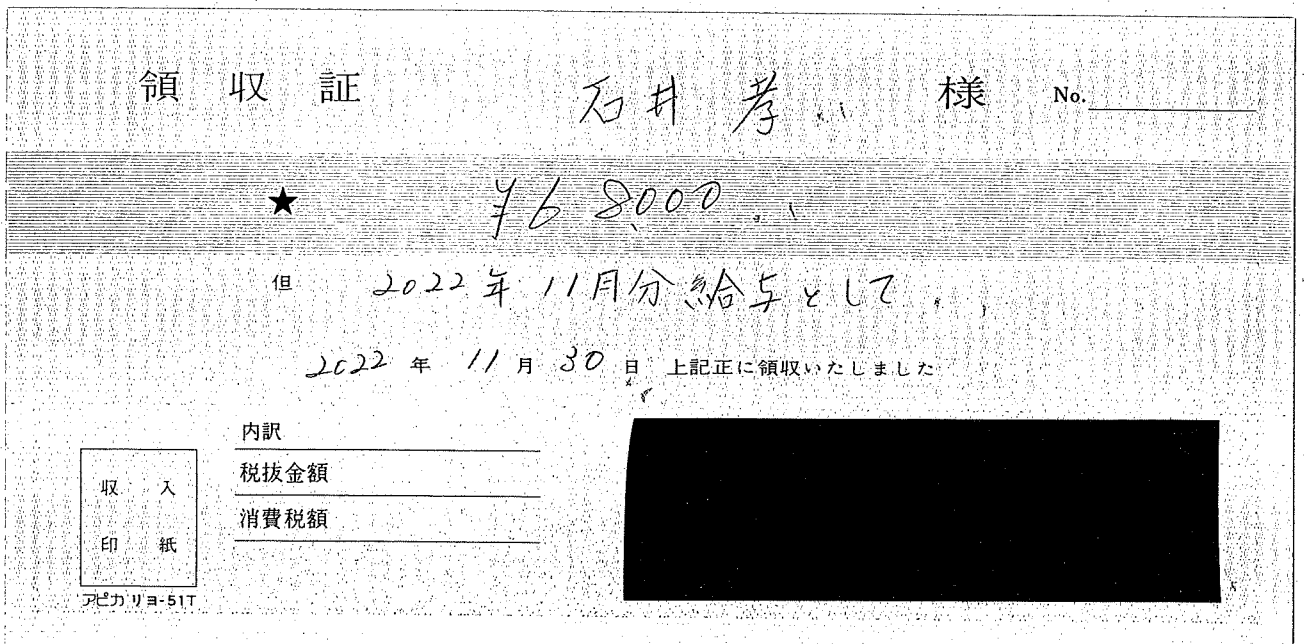 領収証 石井 孝 様 No.
★ ¥68,000
但 2022年11月分給与として
2022年 11月 30日 上記正に領収いたしました
内訳
税抜金額
消費税額
収入
印紙
アピカ リヨ-51T